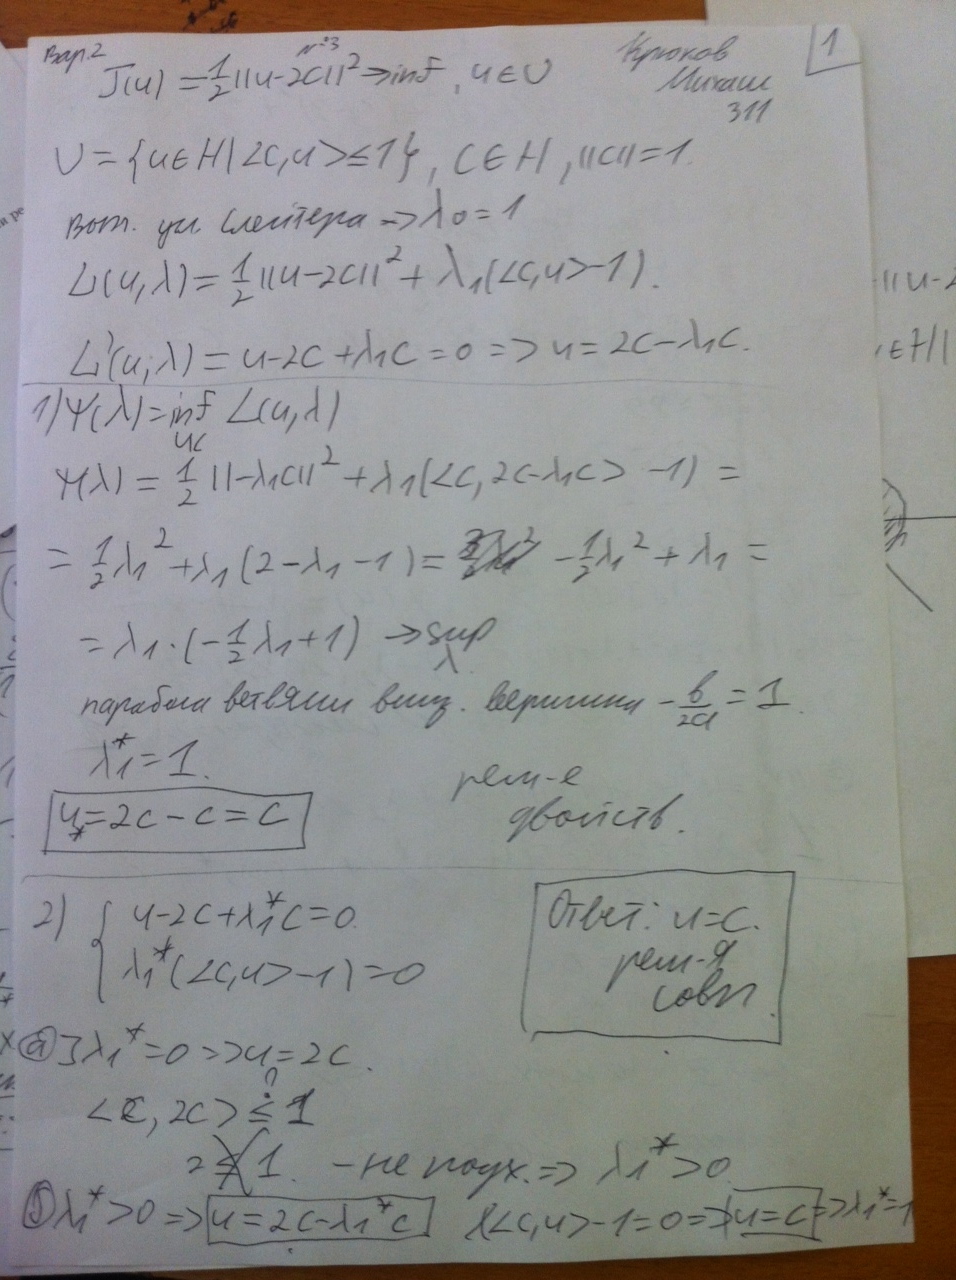 Вар.2 №3
J(u) = 1/2 ||u-2c||² → inf, u ∈ U
Крюков
Михаил
311
1
U = {u∈H | <c,u> ≤ 1}, c∈H, ||c||=1.
вып. усл Слейтера => λ0 = 1
L(u,λ) = 1/2 ||u-2c||² + λ1(<c,u>-1).
L'(u,λ) = u-2c+λ1c = 0 => u = 2c-λ1c.
1) Ψ(λ) = inf L(u,λ)
Ψ(λ) = 1/2 ||-λ1c||² + λ1(<c, 2c-λ1c> -1) =
= 1/2 λ1² + λ1(2-λ1-1) = -1/2 λ1² + λ1 =
= λ1·(-1/2 λ1+1) → sup λ
парабола ветвями вниз. вершина -в/2a = 1.
λ1* = 1.
u* = 2c - c = c
реш-е
двойств.
2) { u-2c+λ1*c=0
λ1*(<c,u>-1)=0
Ответ: u=c.
реш-я
совп.
а) ∃λ1*=0 => u=2c.
<c, 2c> ≤ 1
?
2 ≤ 1 - не подх. => λ1* > 0
б) λ1*>0 => u = 2c-λ1*c (<c,u>-1=0 => u=c => λ1*=1